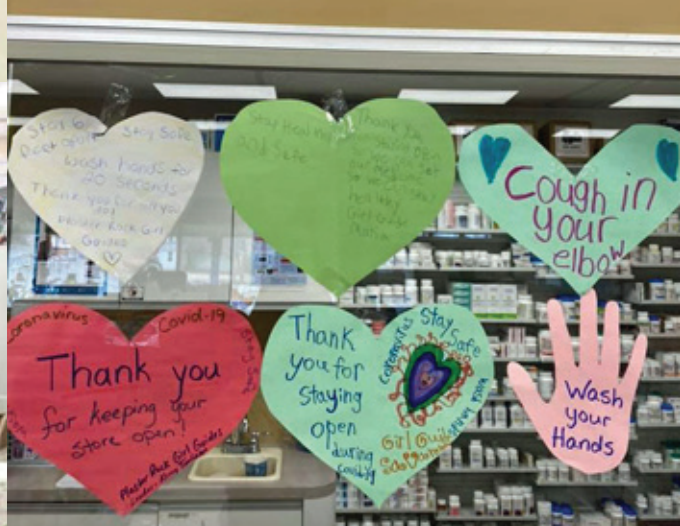 Stay 6
feet apart
Stay Safe
wash hands for
20 seconds
Thank you for all you
do!
Plaster Rock Girl
Guides
Stay Healthy
and Safe
Thank you
for staying open
so we can get
our medicine
Healthy
Girl Guides
Cough in
your
elbow
Coronavirus
Covid-19
Stay Safe
Thank you
for keeping your
store open!
Plaster Rock Girl Guides
Thank
you for
staying
open
during
covid19
Coronavirus
Stay
Safe
wash hands
Girl Guides
Wash
your
Hands